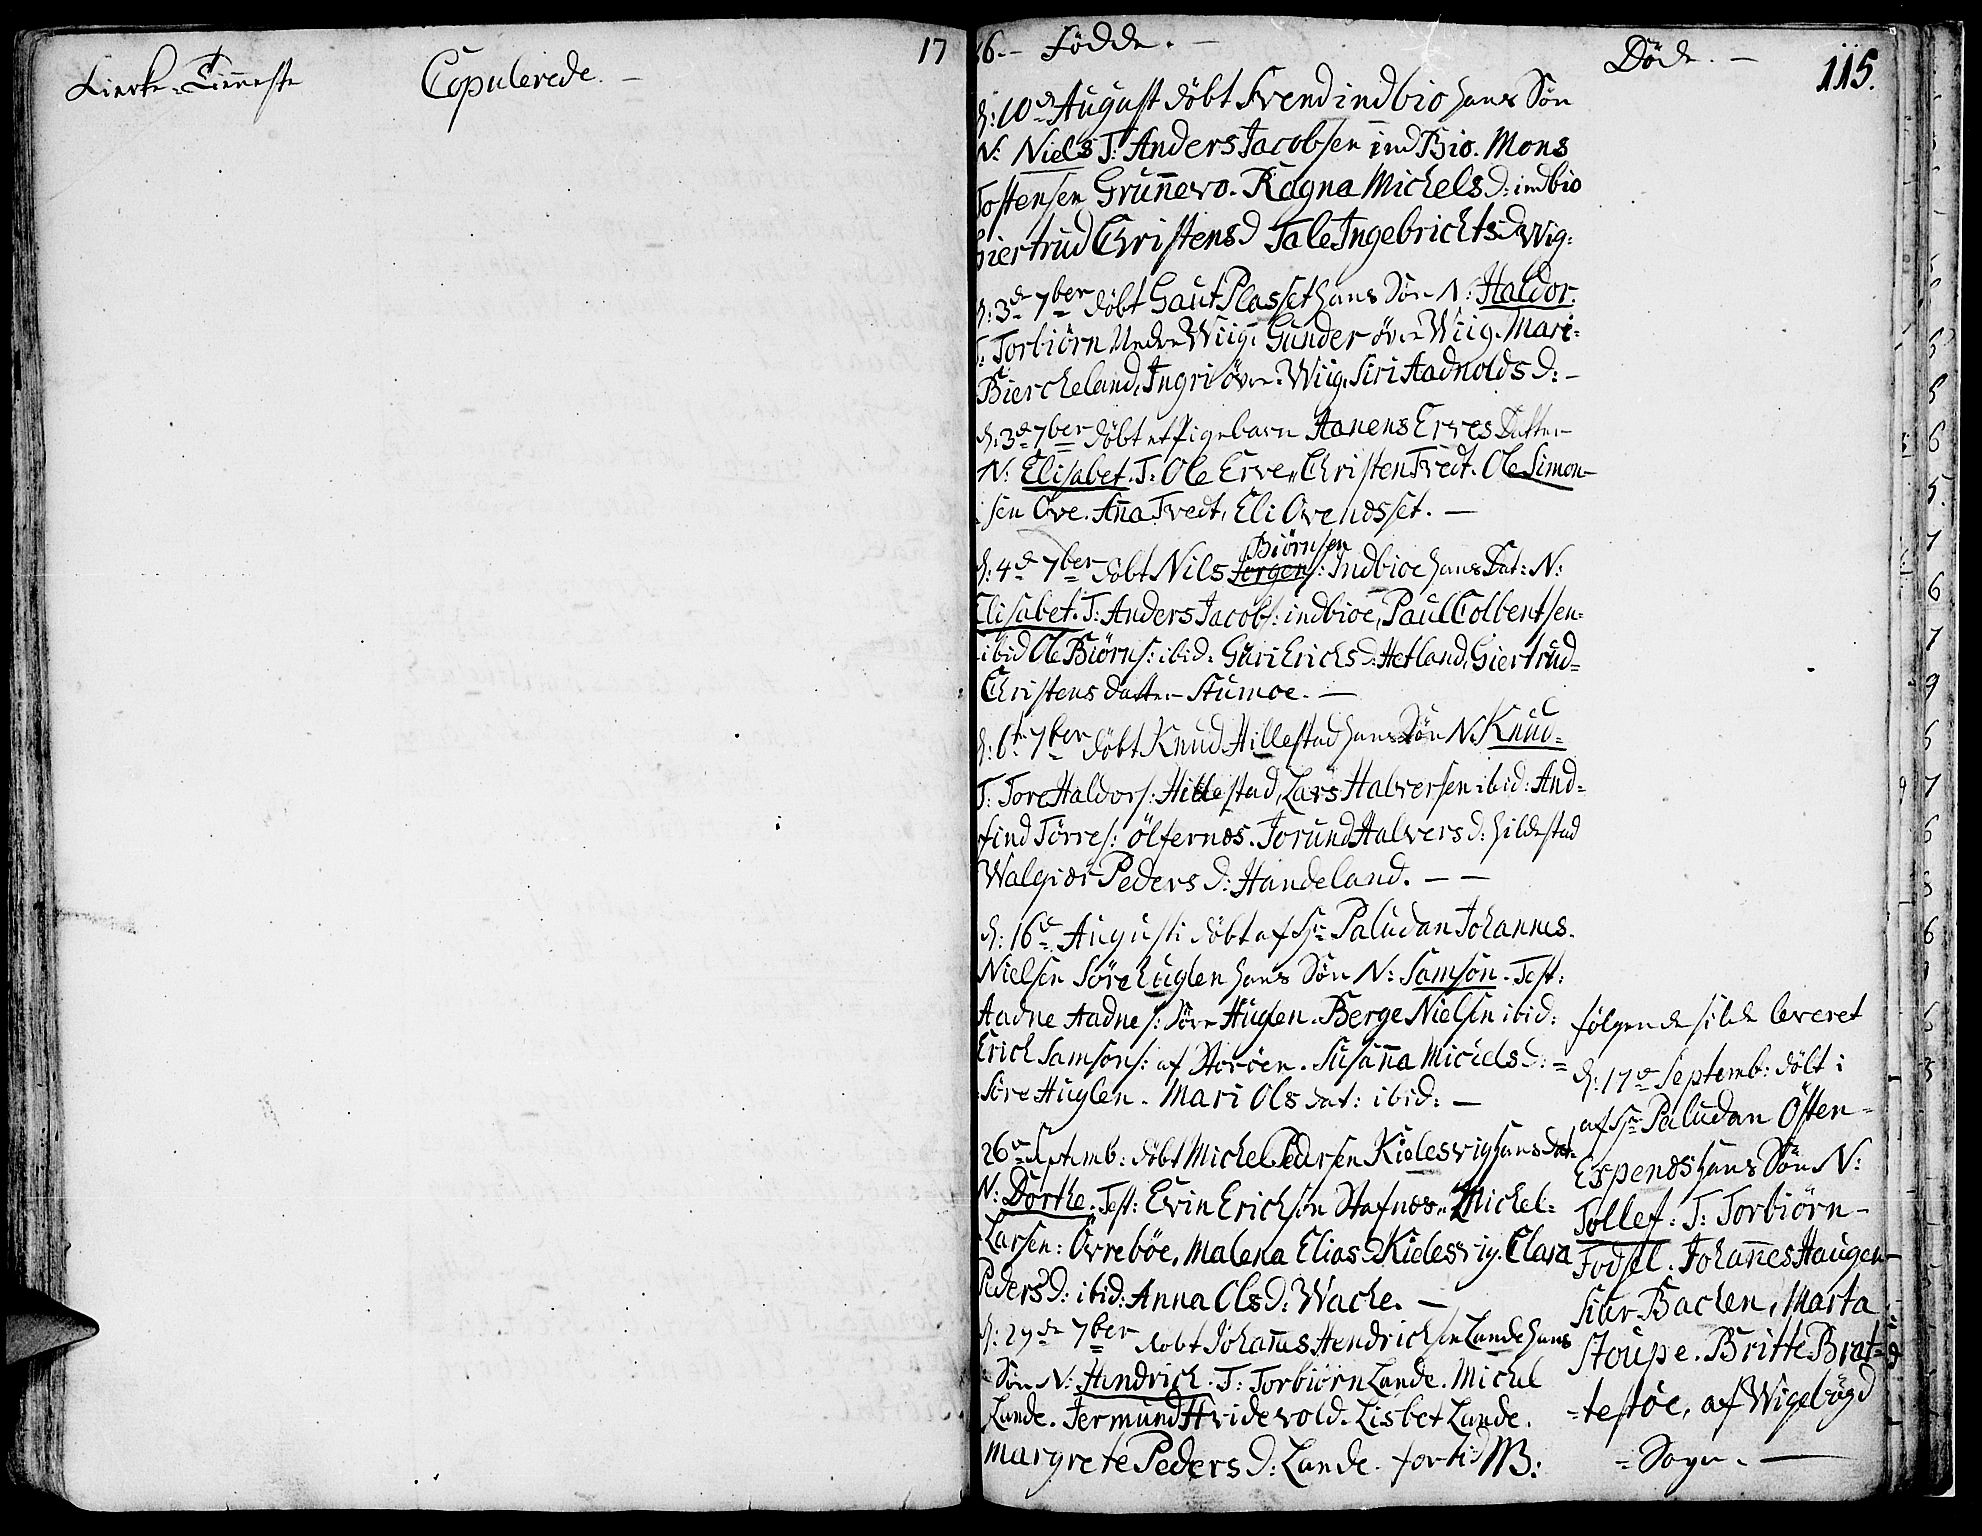 Kierke-Tieneste
Copulerede. —
17
6. - Födde. —
Döde. —
115.
d: 10de August döbt Svend indbio hans Sön
N: Niels T: Anders Jacobsen ind Bio. Mons
Tostensen Grunnevo. Ragna Michelsd: indbio
Giertrud Christensd Tale Ingebrichtsd Wig:
d: 3de 7ber döbt Gaut Plasset hans Sön N: Haldor.
T: Torbiörn Under Wiig. Gunder över Wiig. Mari-
Biercheland, Ingri över-Wiig. Siri Aadnolds D: —
d: 3de 7ber döbt et Pigebarn Aanens Erves Datter
N: Elisabet. T: Ole Erve, Christen Tvedt. Ole Simon-
sen Ove. Anna Tvedt, Eli Ovendsset. —
Biörnsen
d: 4de 7ber döbt Nils Jörgens: Indbioe hans Dat: N:
Elisabet. T: Anders Jacobs: indbioe, Paul Colbentsen-
ibid Ole Biörns: ibid. Guri Erichsd: Hetland, Giertrud-
Christens datter Stumoe. —
d: 6t 7ber döbt Knud Hillestad hans Sön N. Knud-
T: Tore Haldors: Hillestad, Lars Halversen ibid: And-
find Törres: ölfernes. Jorund Halversd: Hildestad
Walgiær Peders D: Handeland. — —
d: 16de Augusti döbt af Hr Paludan Johannes
Nielsen Söre Huglen hans Sön N: Samson. Test:
Aadne Aadnes: Söre Huglen. Berge Nielsen ibid:
Erich Samsons: af Storöen. Susanna Michelsd: =
Söre Huglen. Mari Ols dat: ibid: —
26de Septemb: döbt Michel Pedersen Kielesvig hans dat:
N: Dorthe. Test: Evin Erichsen Stafnes. Michel-
Larsen: Övreböe, Malena Eliasd Kielesvig. Clara
Pedersd: ibid: Anna Olsd: Wache. —
d: 27de 7ber döbt Johannes Hendrichsen Lande hans
Sön N: Hendrich. T: Torbiörn Lande. Michel
Lande. Jermund Hvidevold. Lisbet Lande.
Margrete Peders D: Lande. NB:
følgende silde leveret
d: 17de Septemb: döbt i
af Hr Paludan Östen-
Espends hans Sön N:
Tollef. T: Torbiörn-
Fodsel. Johannes Haugen-
Siur Bachen, Marta
Stoupe. Britte Brat-
-testöe, af Wigebøgd
-Sogn. —